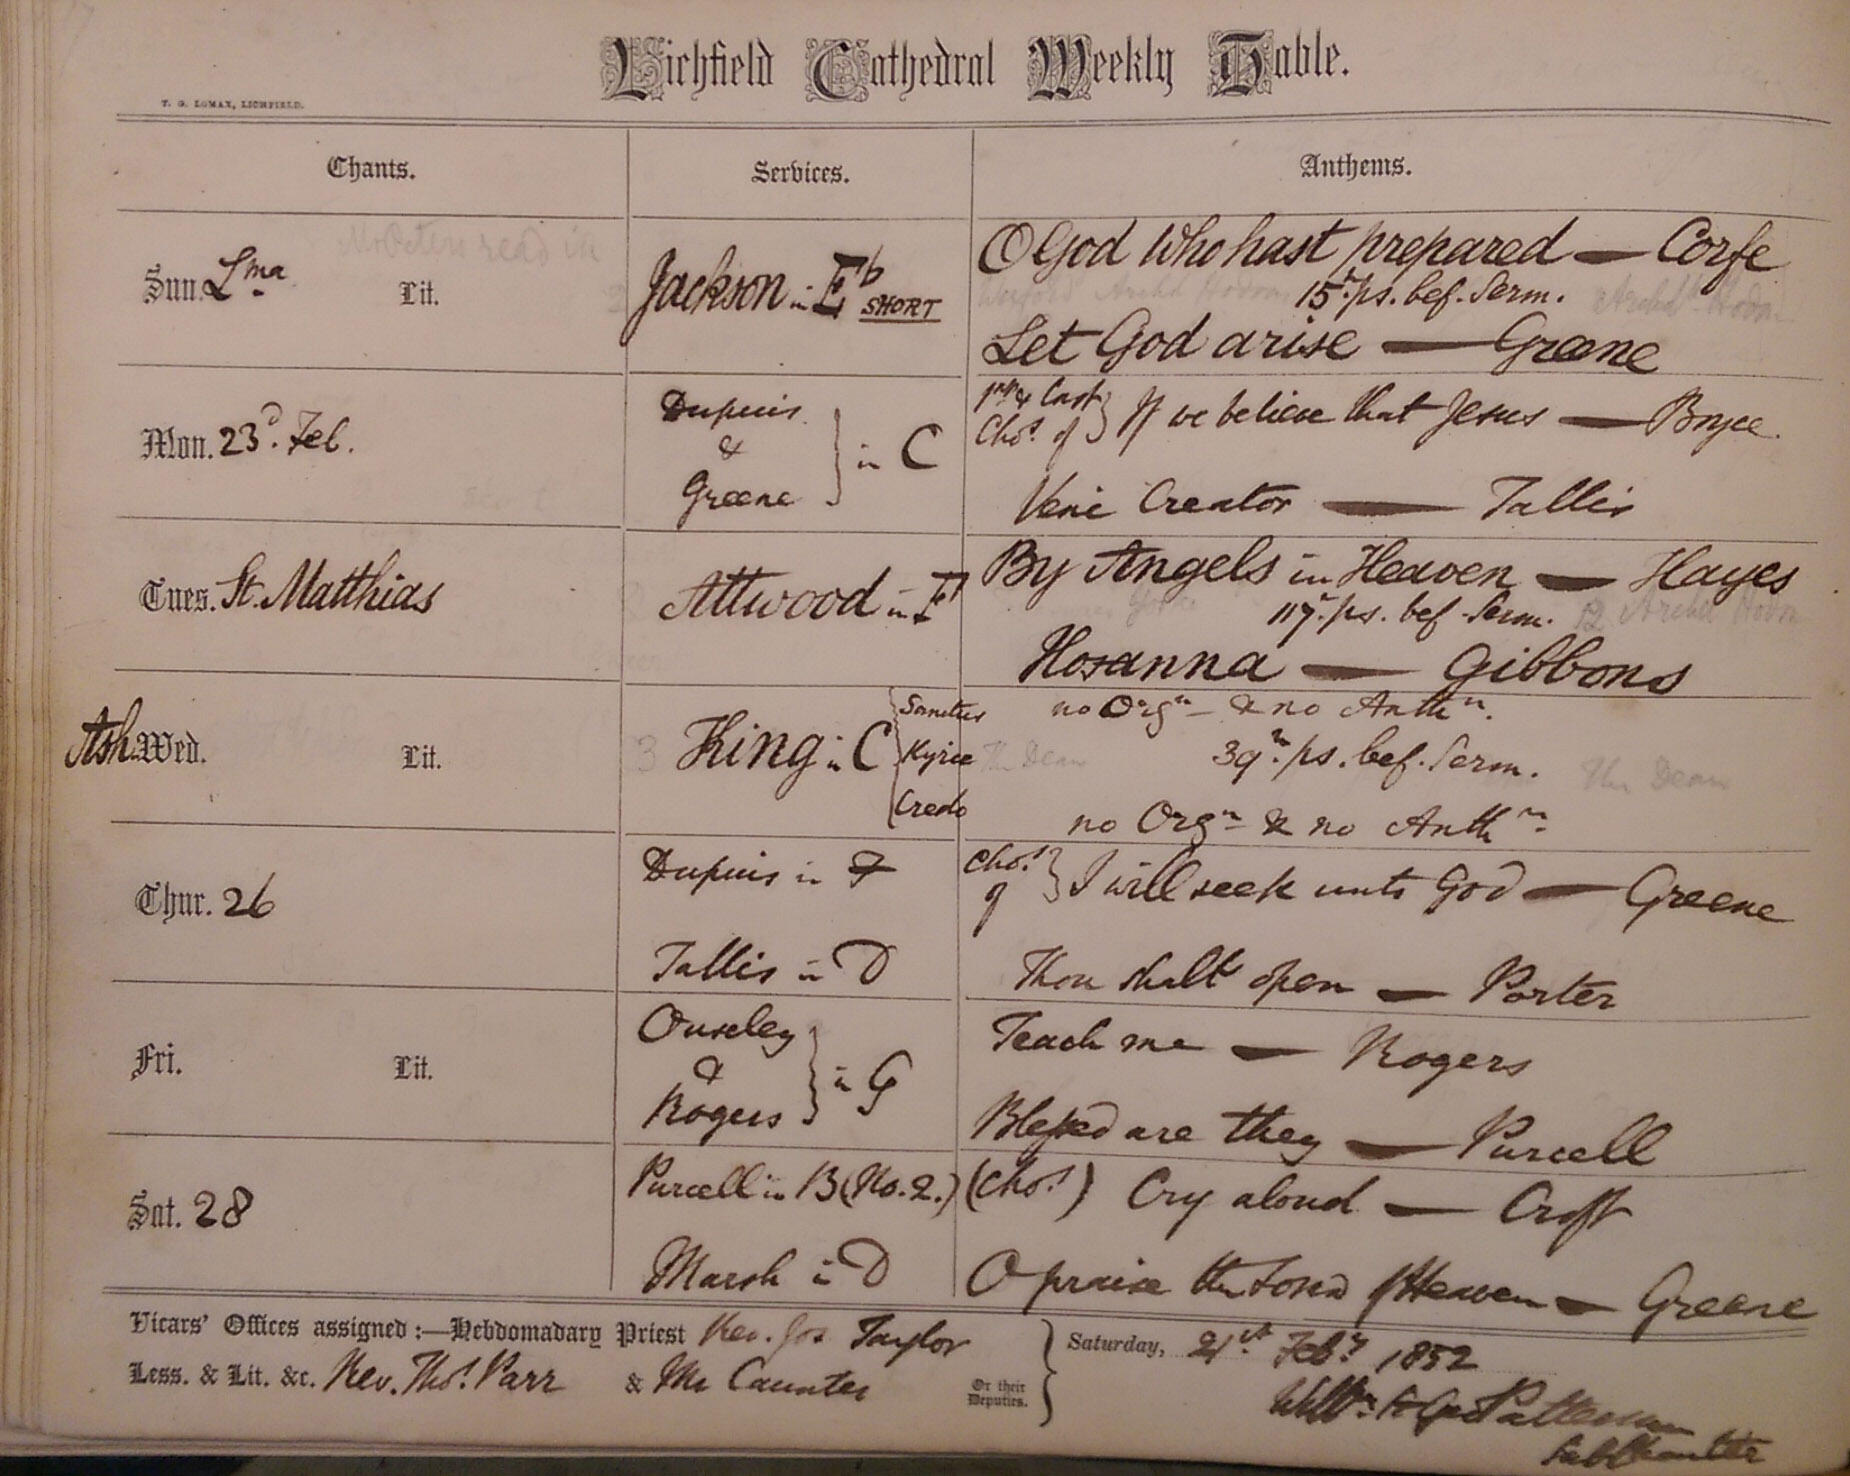 Lichfield Cathedral Weekly Table.
T. G. LOMAX, LICHFIELD.
Chants. Services. Anthems.
Mr Peters read in
Sun. Lma. Lit. Jackson in Eb SHORT
O God Who hast prepared — Corfe
15. ps. bef. Serm.
Let God arise — Greene
Mon. 23d. Feb.
Dupuis & Greene } in C
1st & last Chos. of } If we believe that Jesus — Bryce.
Veni Creator — Tallis
Tues. St. Matthias Attwood in F
By Angels in Heaven — Hayes
117. ps. bef. Serm.
Hosanna — Gibbons
Ash Wed. Lit. 3 King in C { Sanctus Kyrie Credo
no Orgn. & no Anthm.
The Dean 39. ps. bef. Serm. The Dean
no Orgn. & no Anthm.
Thur. 26 Dupuis in F
Chos. of } I will seek unto God — Greene
Tallis in D Thou shalt open — Porter
Fri. Lit. Ouseley & Rogers } in G
Teach me — Rogers
Blessed are they — Purcell
Sat. 28 Purcell in B (No. 2.) (Chos.) Cry aloud — Croft
Marsh in D O praise the Lord of Heaven — Greene
Vicars' Offices assigned :—Hebdomadary Priest Rev. Jos Taylor
Less. & Lit. &c. Rev. Thos. Parr & Mr Caunter
Or their Deputies. } Saturday, 21st Feby. 1852
Subchanter